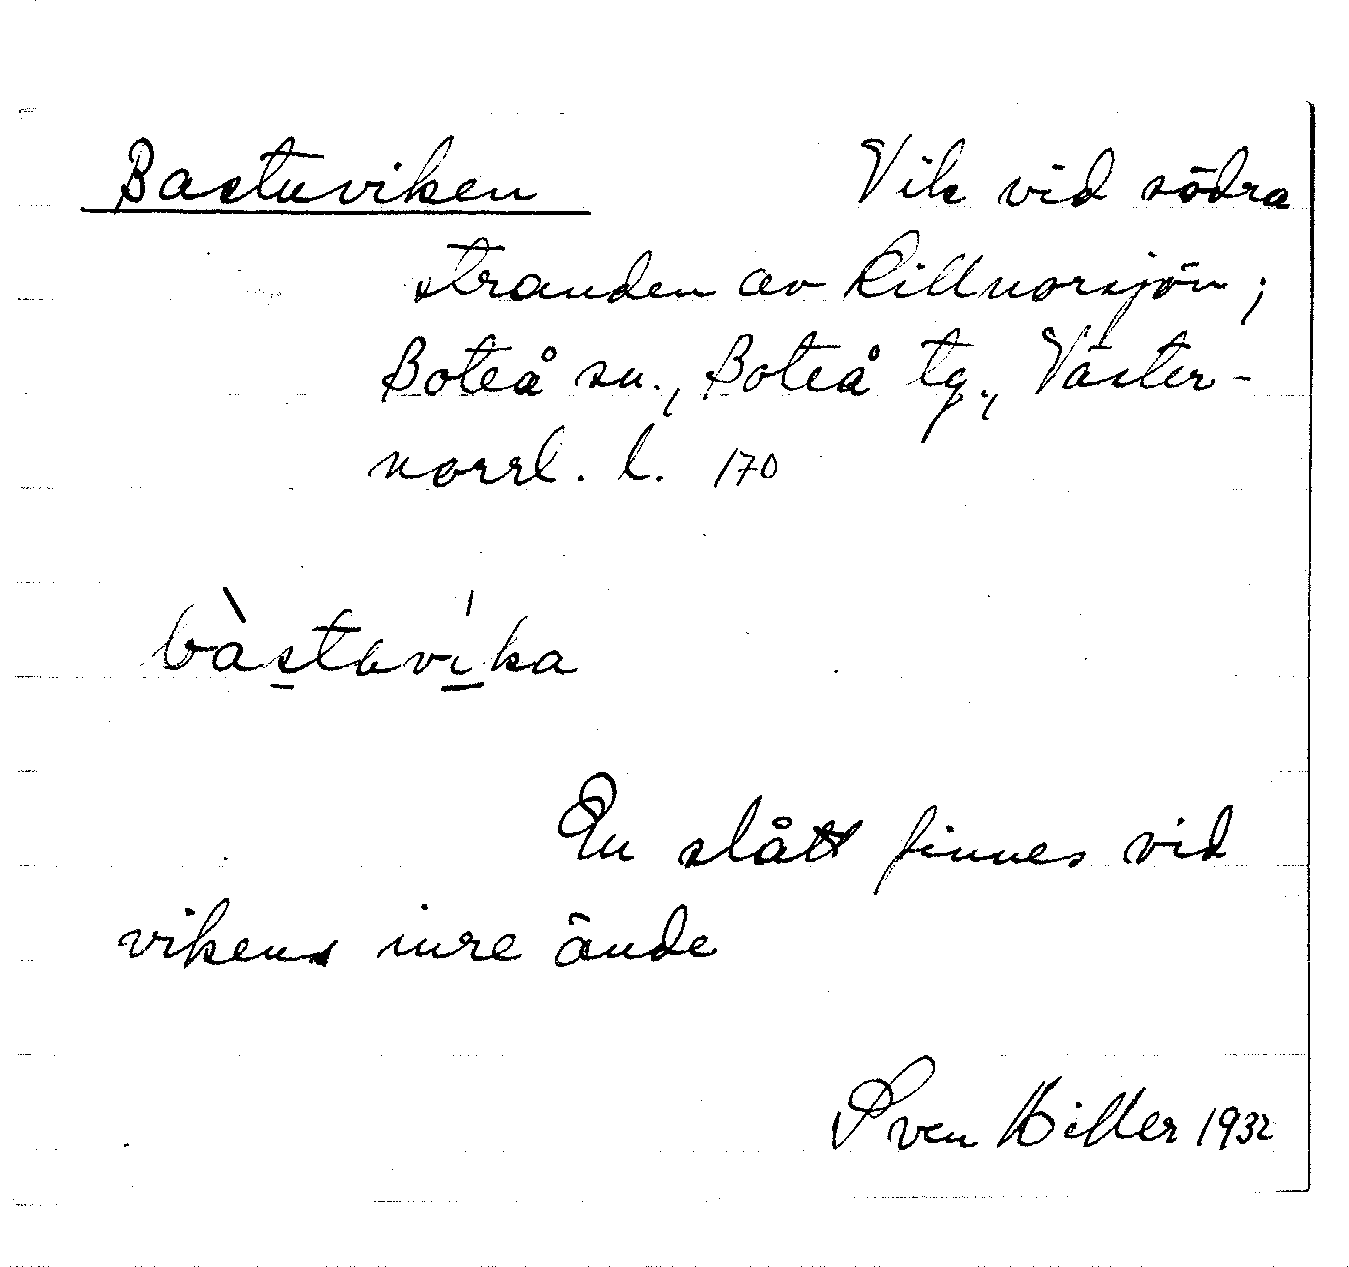 Bastuviken Vik vid södra
stranden av Lillnorsjön;
Boteå sn., Boteå tg., Väster-
norrl. l. 170
bàstɷví̱ka
En slått finnes vid
vikens inre ände
Sven Hiller 1932